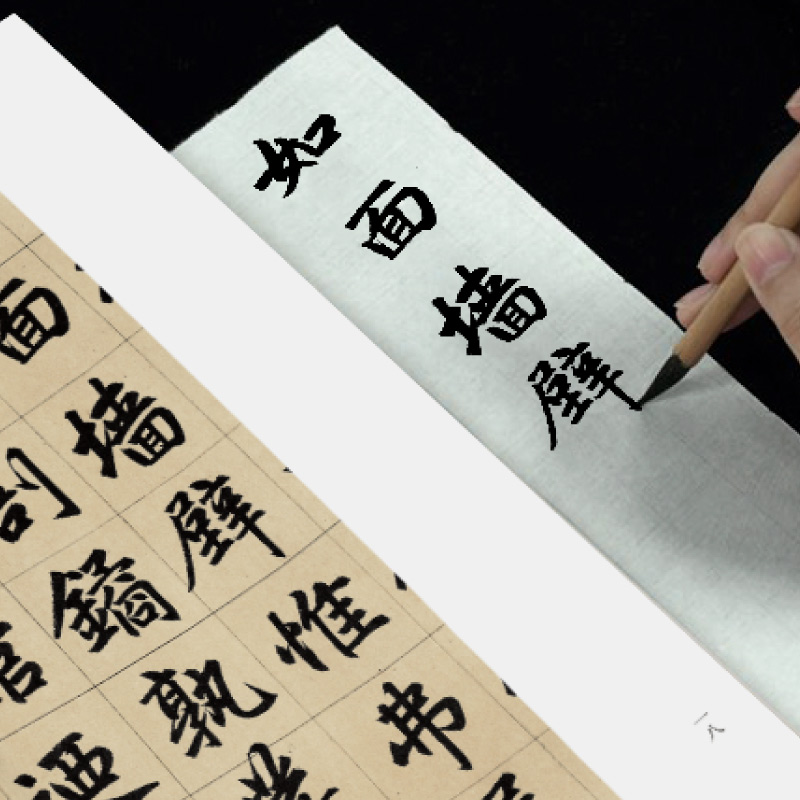 如面墙壁
面墙壁惟弗
鐍孰
一八